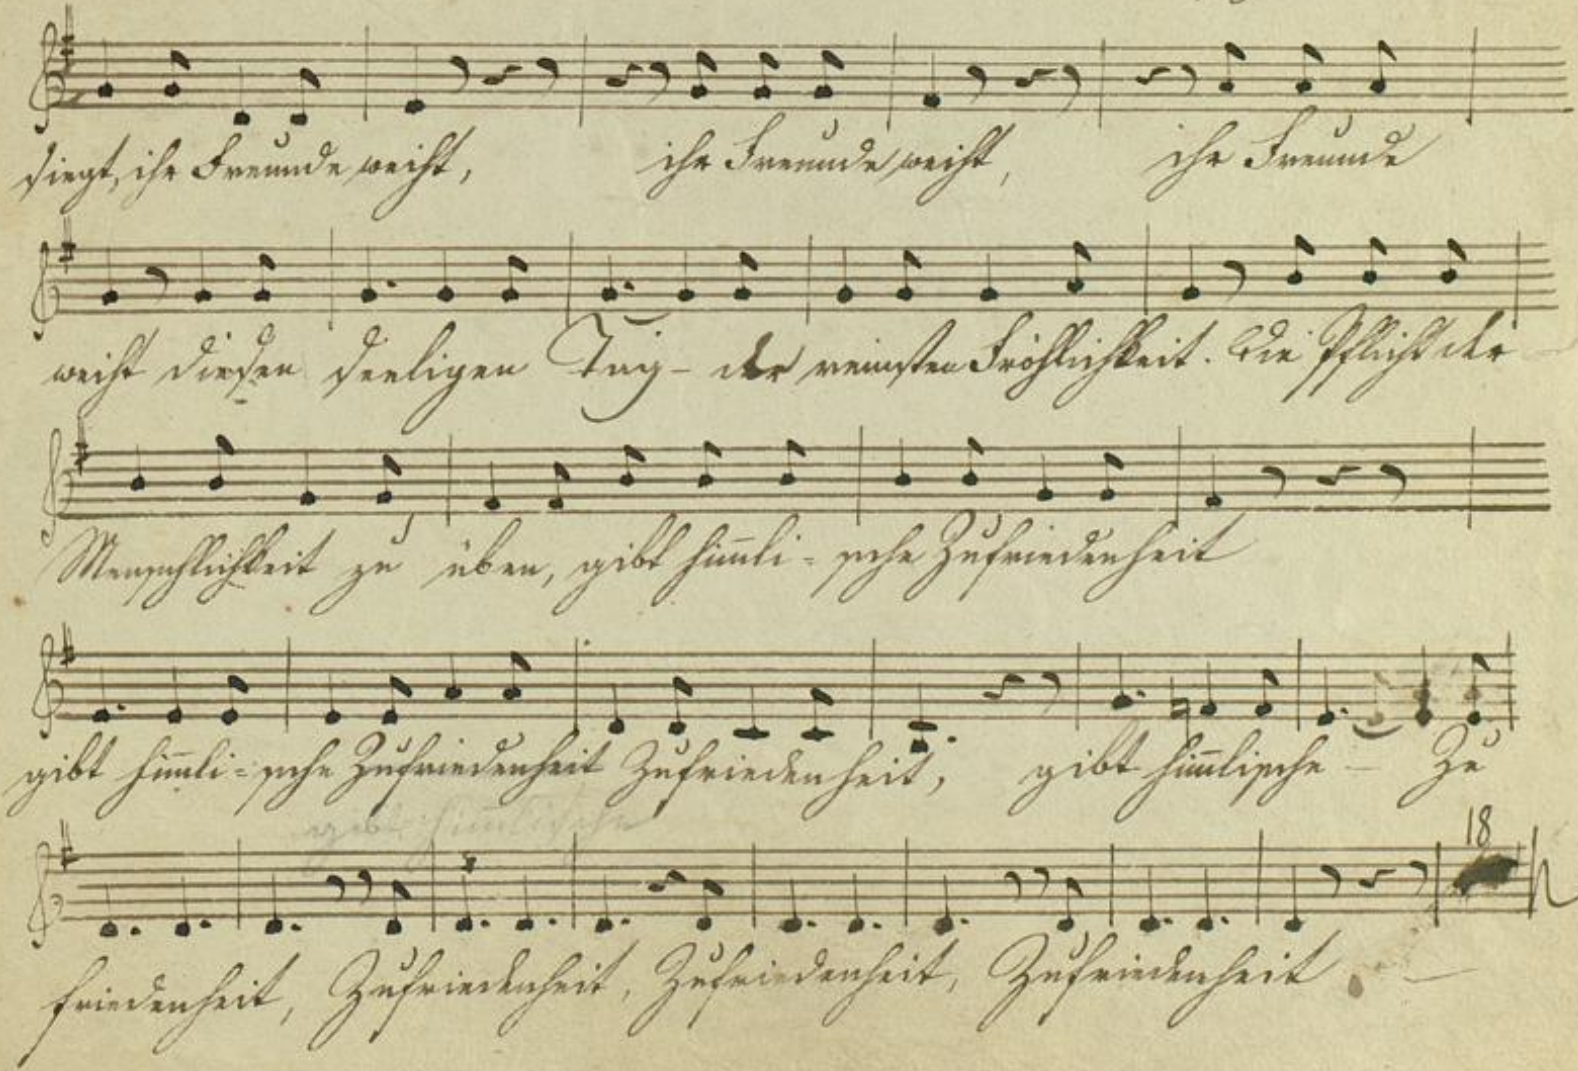 siegt, ihr Freunde weiht, ihr Freunde weiht, ihr Freunde
weiht diesen seeligen Tag - der reinsten Fröhlichkeit. Die Pflicht der
Menschlichkeit zu üben, gibt him̅li = sche Zufriedenheit
gibt him̅li = sche Zufriedenheit Zufriedenheit, gibt him̅lische - Zu
gibt him̅lische
18
friedenheit, Zufriedenheit, Zufriedenheit, Zufriedenheit -